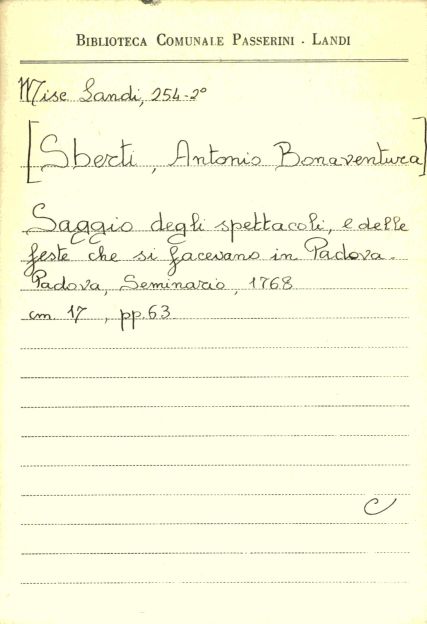 BIBLIOTECA COMUNALE PASSERINI - LANDI
Misc Landi, 254-2°
[Sberti, Antonio Bonaventura]
Saggio degli spettacoli, e delle
feste che si facevano in Padova.
Padova, Seminario, 1768
cm. 17, pp. 63
C